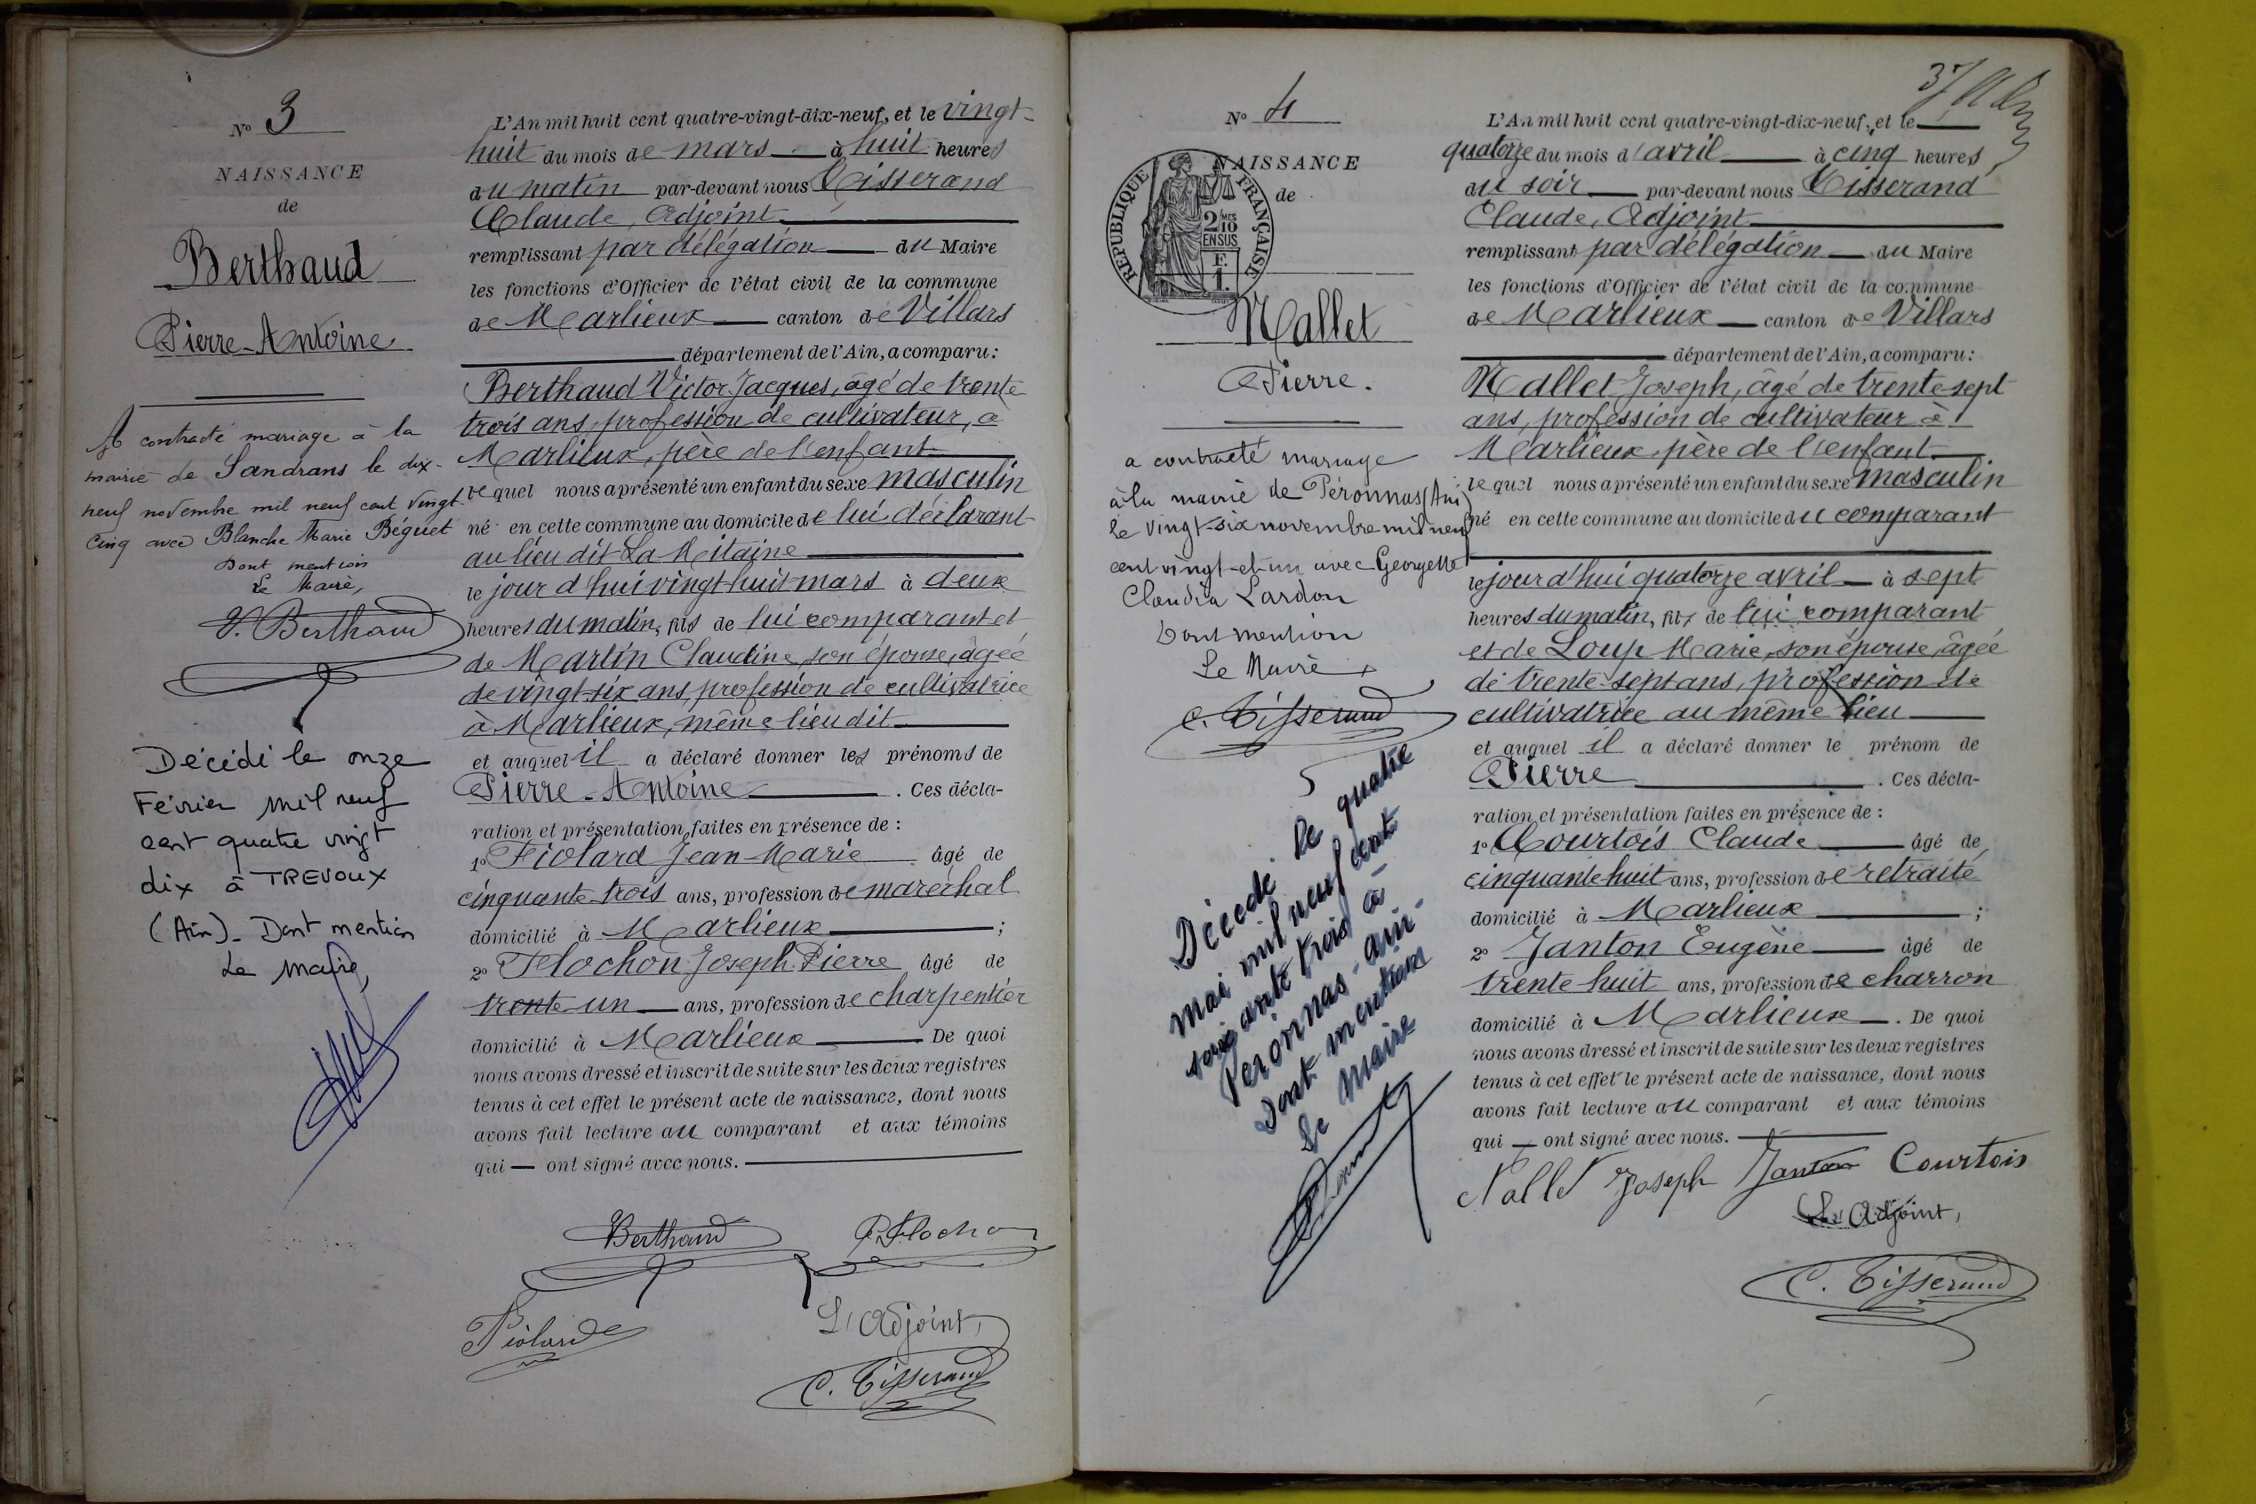 N° 3
NAISSANCE
de
Berthaud
Pierre-Antoine
A contracté mariage à la
mairie de Sandrans le dix-
neuf novembre mil neuf cent vingt
cinq avec Blanche Marie Béguet
Dont mention
Le Maire,
V. Berthaud
Décédé le onze
Février mil neuf
cent quatre vingt
dix à TREVOUX
(Ain)_ Dont mention
Le Maire,
L'An mil huit cent quatre-vingt-dix-neuf, et le vingt-
huit du mois de mars à huit heures
du matin par-devant nous Tisserand
Claude, Adjoint
remplissant par délégation du Maire
les fonctions d'Officier de l'état civil de la commune
de Marlieux canton de Villars
département de l'Ain, a comparu:
Berthaud Victor Jacques, âgé de trente
trois ans, profession de cultivateur, à
Marlieux, père de l'enfant
lequel nous a présenté un enfant du sexe masculin
né en cette commune au domicile de lui déclarant
au lieu dit La Mitaine
le jour d'hui vingt huit mars à deux
heures du matin, fils de lui comparant et
de Martin Claudine, son épouse, âgée
de vingt-six ans, profession de cultivatrice
à Marlieux, même lieu dit
et auquel il a déclaré donner les prénoms de
Pierre-Antoine . Ces décla-
ration et présentation faites en présence de :
1° Fiolard Jean-Marie âgé de
cinquante trois ans, profession de maréchal
domicilié à Marlieux ;
2° Flochon Joseph Pierre âgé de
trente-un ans, profession de charpentier
domicilié à Marlieux De quoi
nous avons dressé et inscrit de suite sur les deux registres
tenus à cet effet le présent acte de naissance, dont nous
avons fait lecture au comparant et aux témoins
qui ont signé avec nous.
Berthaud P. Flochon
Fiolard
L'Adjoint,
C. Tisserand
37
N° 4
NAISSANCE
de
REPUBLIQUE FRANÇAISE
2/10 MES
EN SUS
F.
1.
Mallet
Pierre.
a contracté mariage
à la mairie de Péronnas (Ain)
le vingt-six novembre mil neuf
cent vingt-et-un avec Georgette
Claudia Lardon
Dont mention
Le Maire,
C. Tisserand
Décédé le quatre
mai mil neuf cent
soixante trois à
Péronnas - Ain -
Dont mention
Le Maire
L'An mil huit cent quatre-vingt-dix-neuf, et le
quatorze du mois d'avril à cinq heures
du soir par-devant nous Tisserand
Claude, Adjoint
remplissant par délégation du Maire
les fonctions d'Officier de l'état civil de la commune
de Marlieux canton de Villars
département de l'Ain, a comparu:
Mallet Joseph, âgé de trente-sept
ans, profession de cultivateur à
Marlieux, père de l'enfant
lequel nous a présenté un enfant du sexe masculin
né en cette commune au domicile du comparant
le jour d'hui quatorze avril à sept
heures du matin, fils de lui comparant
et de Loup Marie, son épouse, âgée
de trente-sept ans, profession de
cultivatrice au même lieu
et auquel il a déclaré donner le prénom de
Pierre . Ces décla-
ration et présentation faites en présence de :
1° Courtois Claude âgé de
cinquante huit ans, profession de retraité
domicilié à Marlieux ;
2° Janton Eugène âgé de
trente huit ans, profession de charron
domicilié à Marlieux . De quoi
nous avons dressé et inscrit de suite sur les deux registres
tenus à cet effet le présent acte de naissance, dont nous
avons fait lecture au comparant et aux témoins
qui ont signé avec nous.
Mallet Joseph Janton Courtois
L'Adjoint,
C. Tisserand